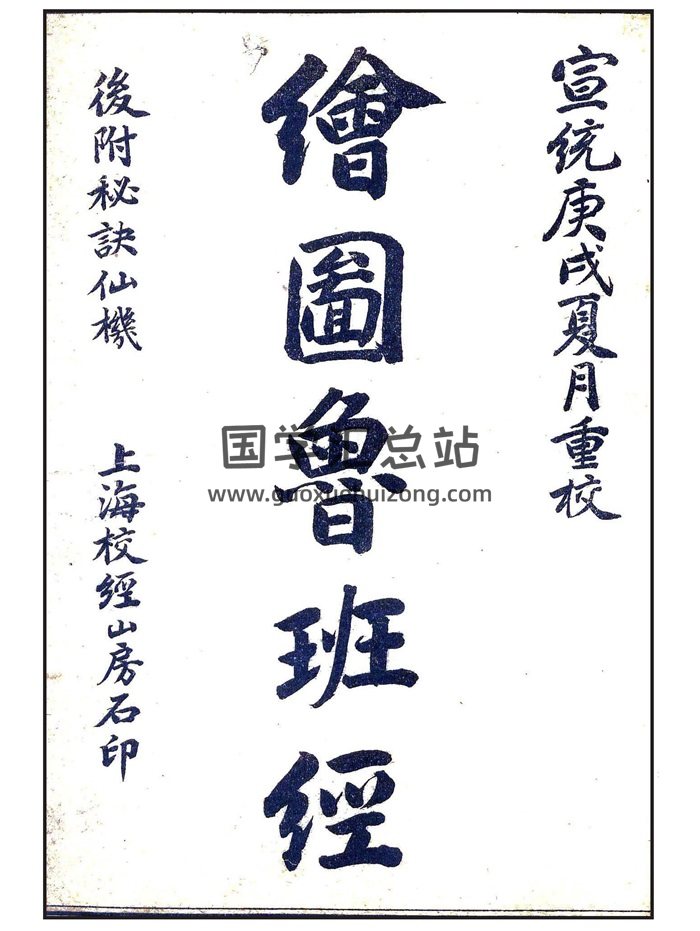 宣統庚戌夏月重校
繪圖魯班經
後附秘訣仙機
上海校經山房石印
国学汇总站
www.guoxuehuizong.com